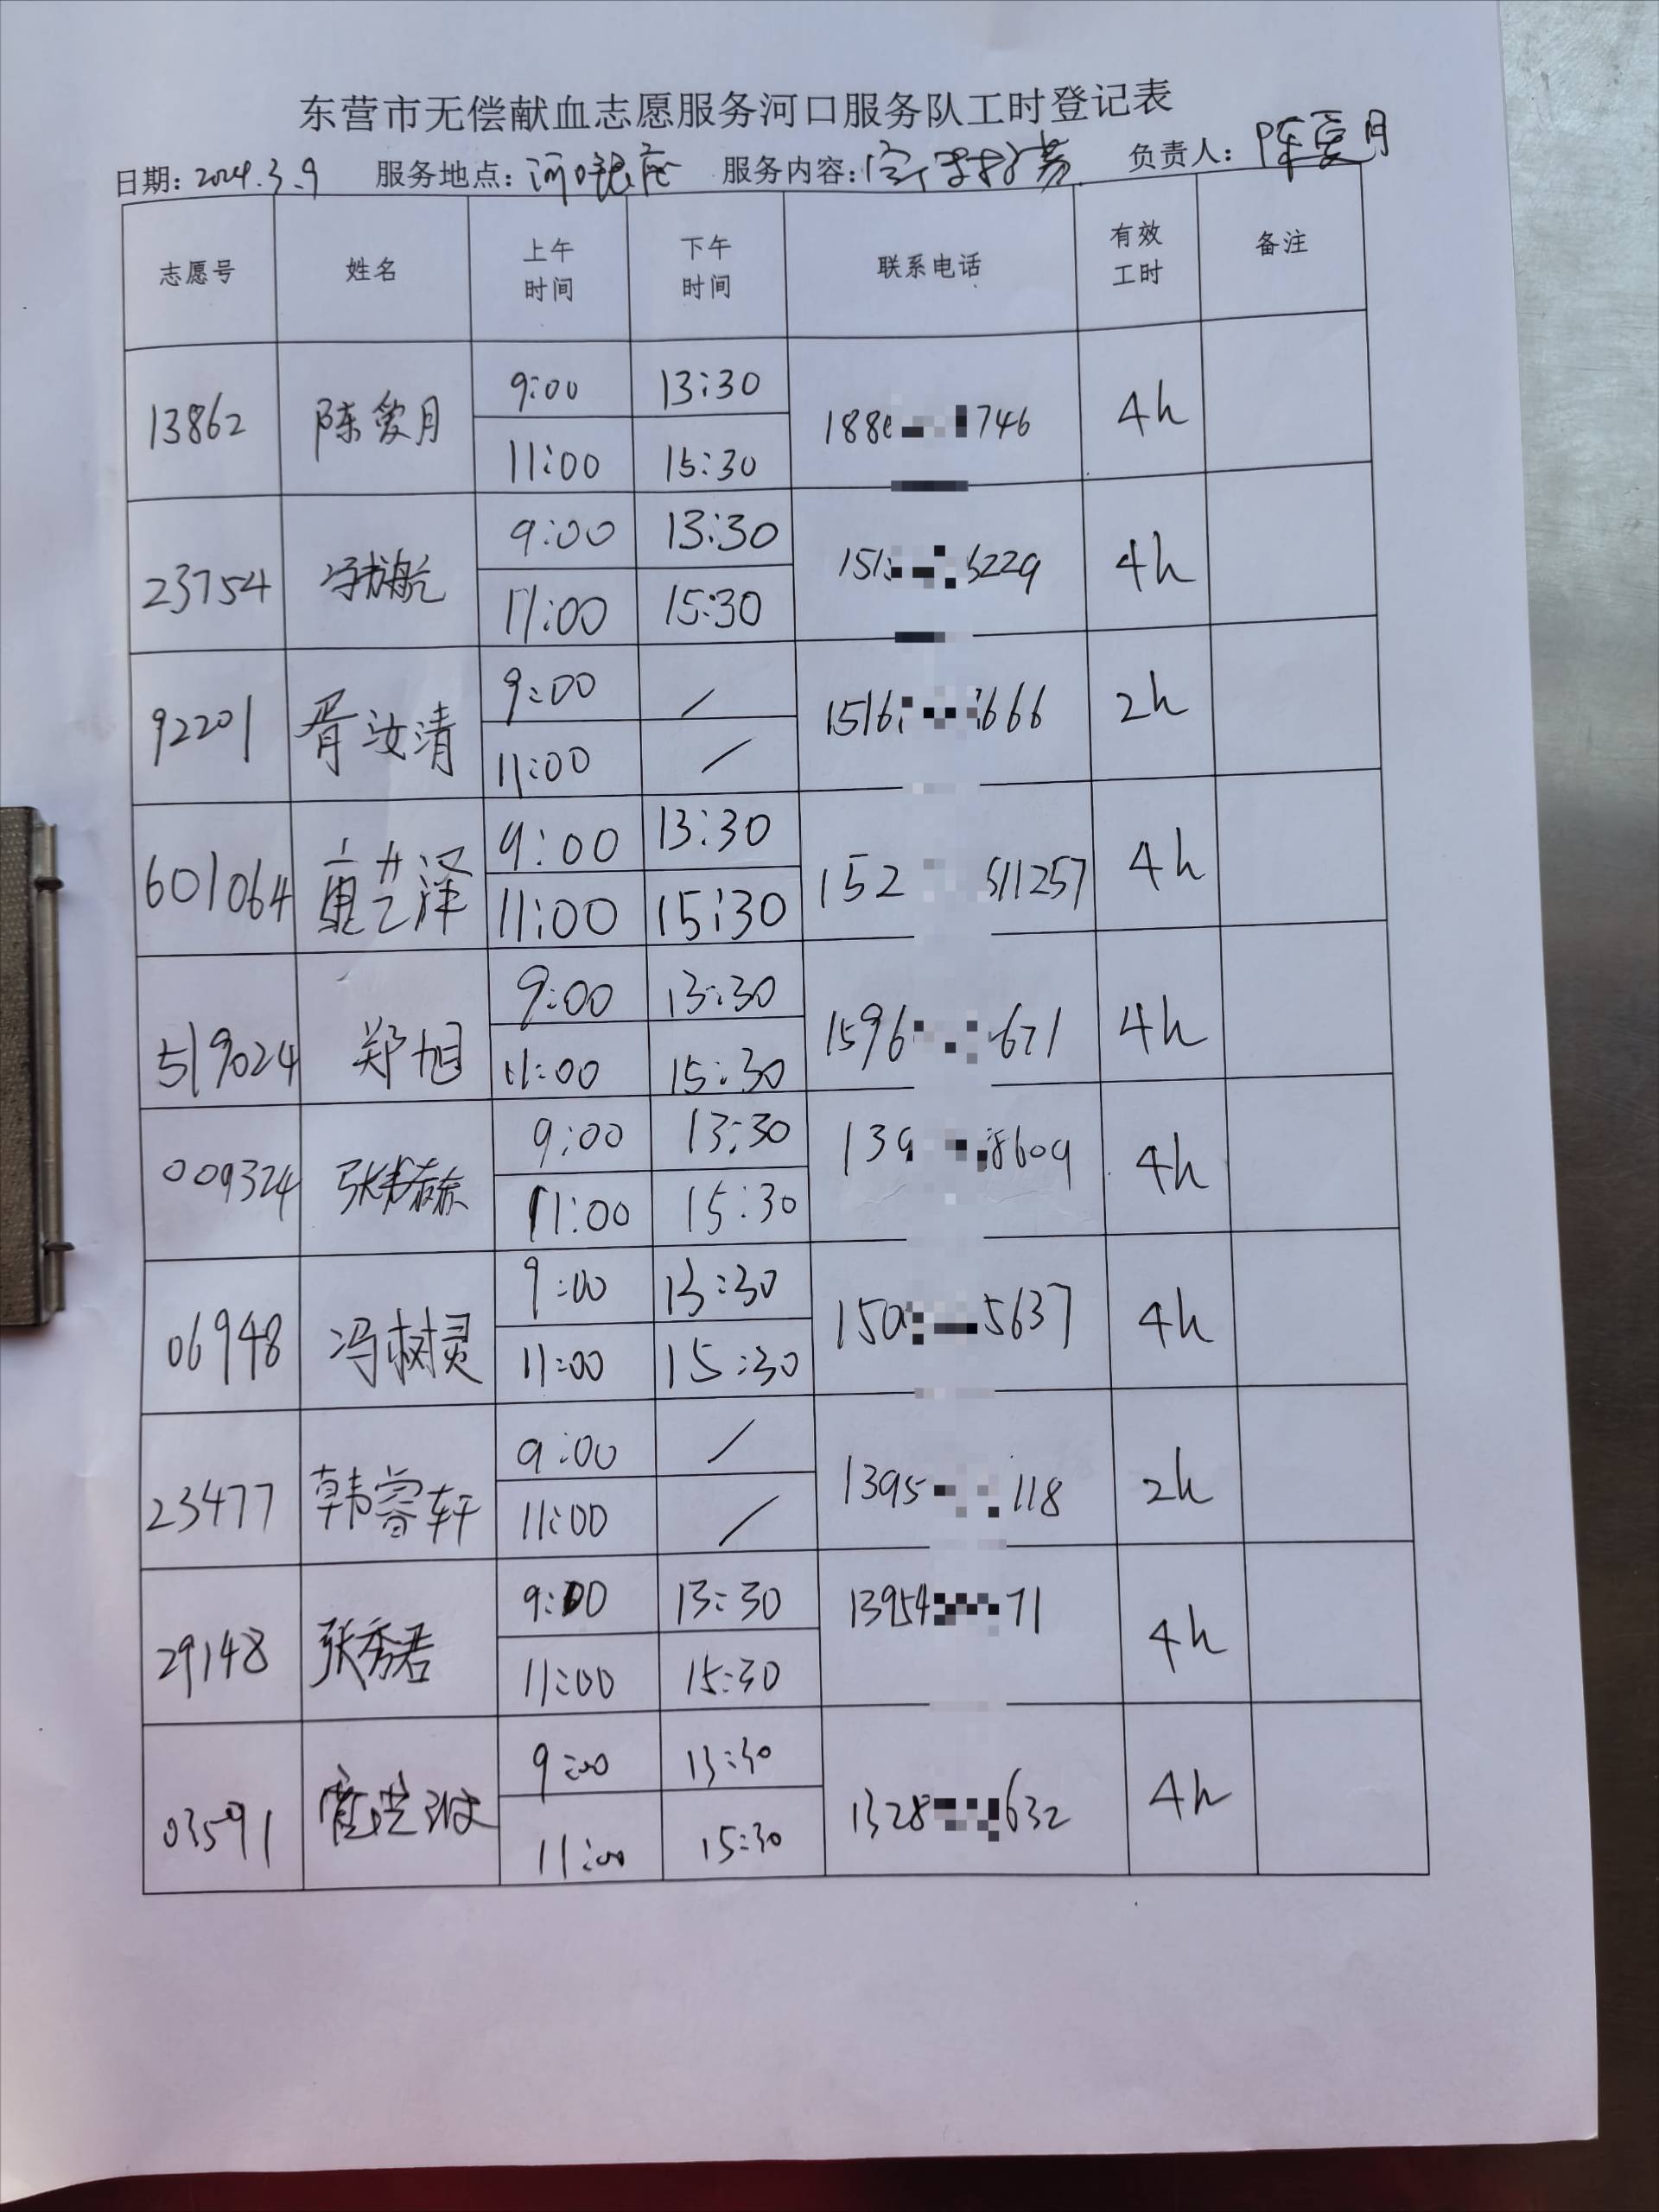 东营市无偿献血志愿服务河口服务队工时登记表
日期: 2024.3.9 服务地点: 河口银座 服务内容: 宣传招募 负责人: 陈爱月
志愿号 姓名 上午时间 下午时间 联系电话 有效工时 备注
13862 陈爱月 9:00 13:30 188 746 4h
11:00 15:30
23754 冯 航 9:00 13:30 151 5229 4h
11:00 15:30
92201 胥汝清 9:00 / 1516 666 2h
11:00 /
601064 艺泽 9:00 13:30 152 511257 4h
11:00 15:30
519024 郑旭 9:00 13:30 1596 671 4h
11:00 15:30
009324 张 9:00 13:30 139 8609 4h
11:00 15:30
06948 冯树灵 9:00 13:30 150 5637 4h
11:00 15:30
23477 韩睿轩 9:00 / 1395 118 2h
11:00 /
29148 张秀君 9:00 13:30 13954 71 4h
11:00 15:30
03591 9:00 13:30 1328 632 4h
11:00 15:30